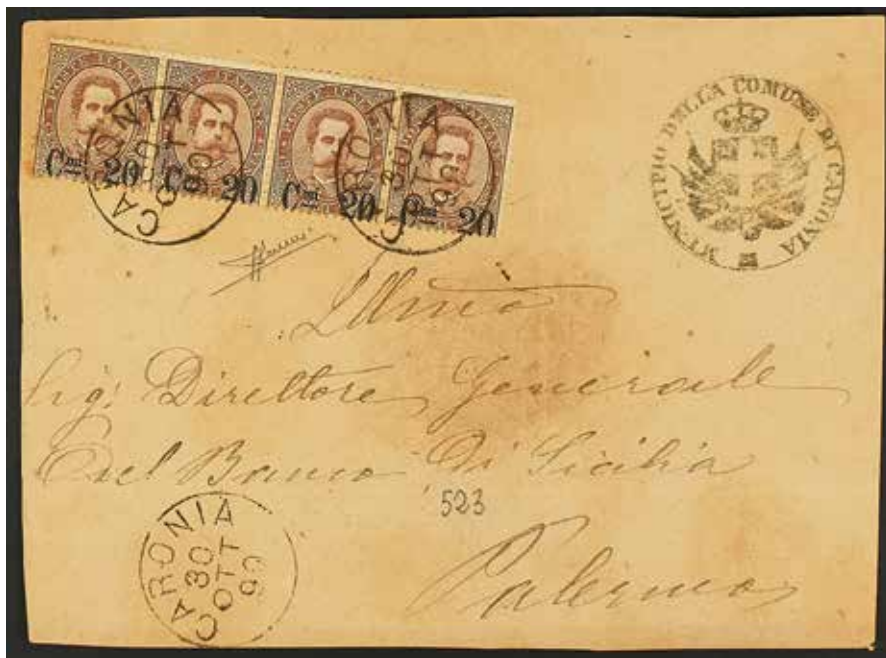 POSTE ITALIANE
Cmi 20 Cmi 20 Cmi 20 Cmi 20
CARONIA
30
OTT
90
CARONIA
30
OTT
90
MUNICIPIO DELLA COMUNE DI CARONIA
Sig: Direttore Generale
del Banco di Sicilia
523
Palermo
CARONIA
30
OTT
90